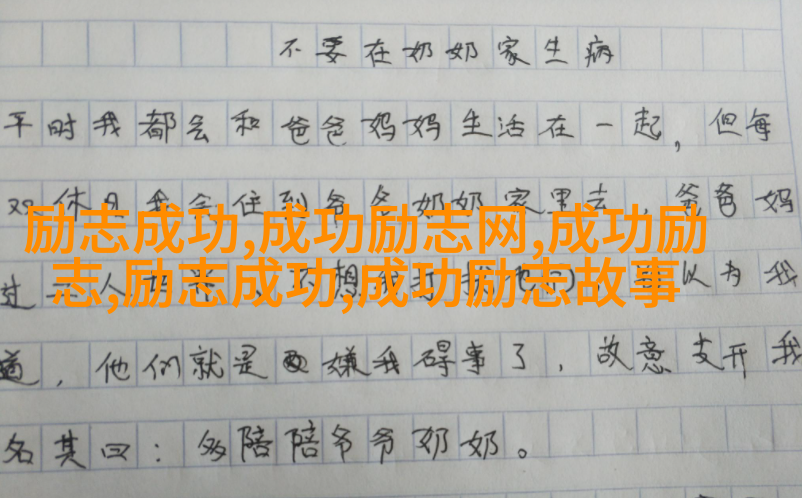 不要在奶奶家生病
平时我都会和爸爸妈妈生活在一起，但每
双休日我会住到爷爷奶奶家里去，爸爸妈
励志成功,成功励志网,成功励
志,励志成功,成功励志故事
过二人世界
以为我
道，他们就是嫌我碍事了，故意支开我
名其曰：多陪陪爷爷奶奶。